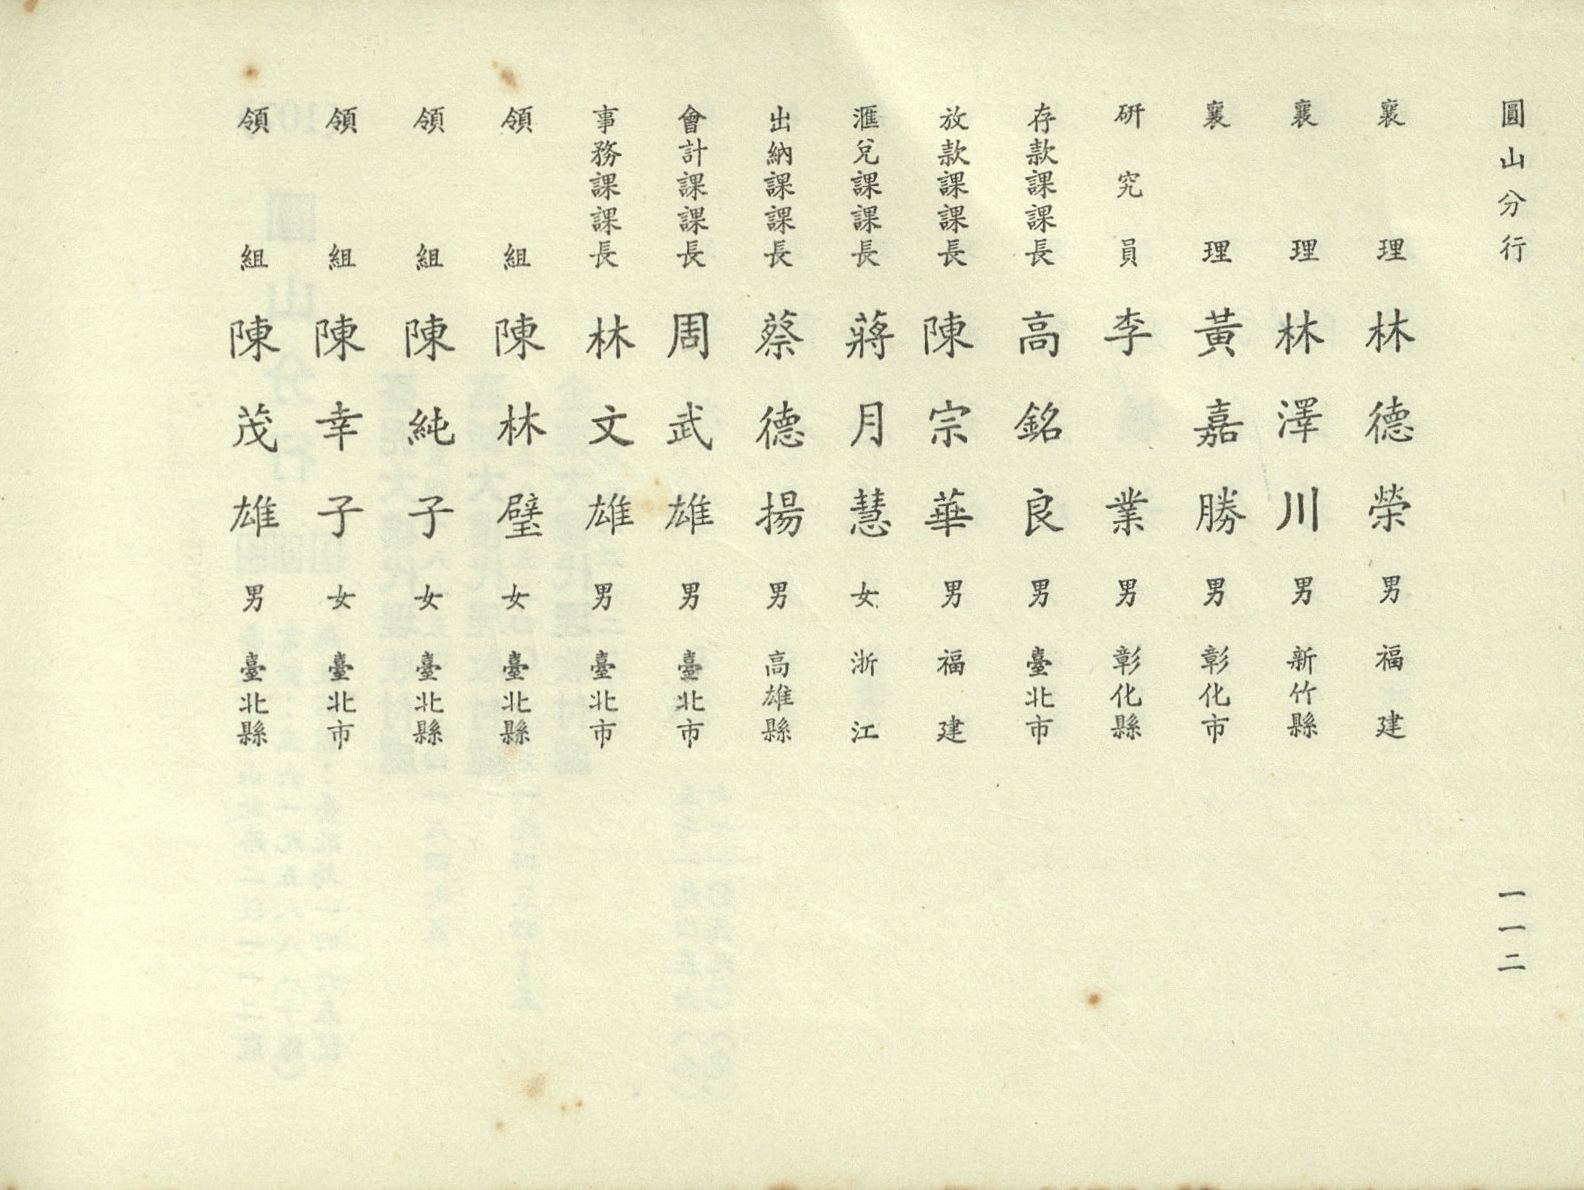 圓山分行
一一二
襄理 林德榮 男 福建
襄理 林澤川 男 新竹縣
襄理 黃嘉勝 男 彰化市
研究員 李業 男 彰化縣
存款課課長 高銘良 男 臺北市
放款課課長 陳宗華 男 福建
滙兌課課長 蔣月慧 女 浙江
出納課課長 蔡德揚 男 高雄縣
會計課課長 周武雄 男 臺北市
事務課課長 林文雄 男 臺北市
領組 陳林璧 女 臺北縣
領組 陳純子 女 臺北縣
領組 陳幸子 女 臺北市
領組 陳茂雄 男 臺北縣